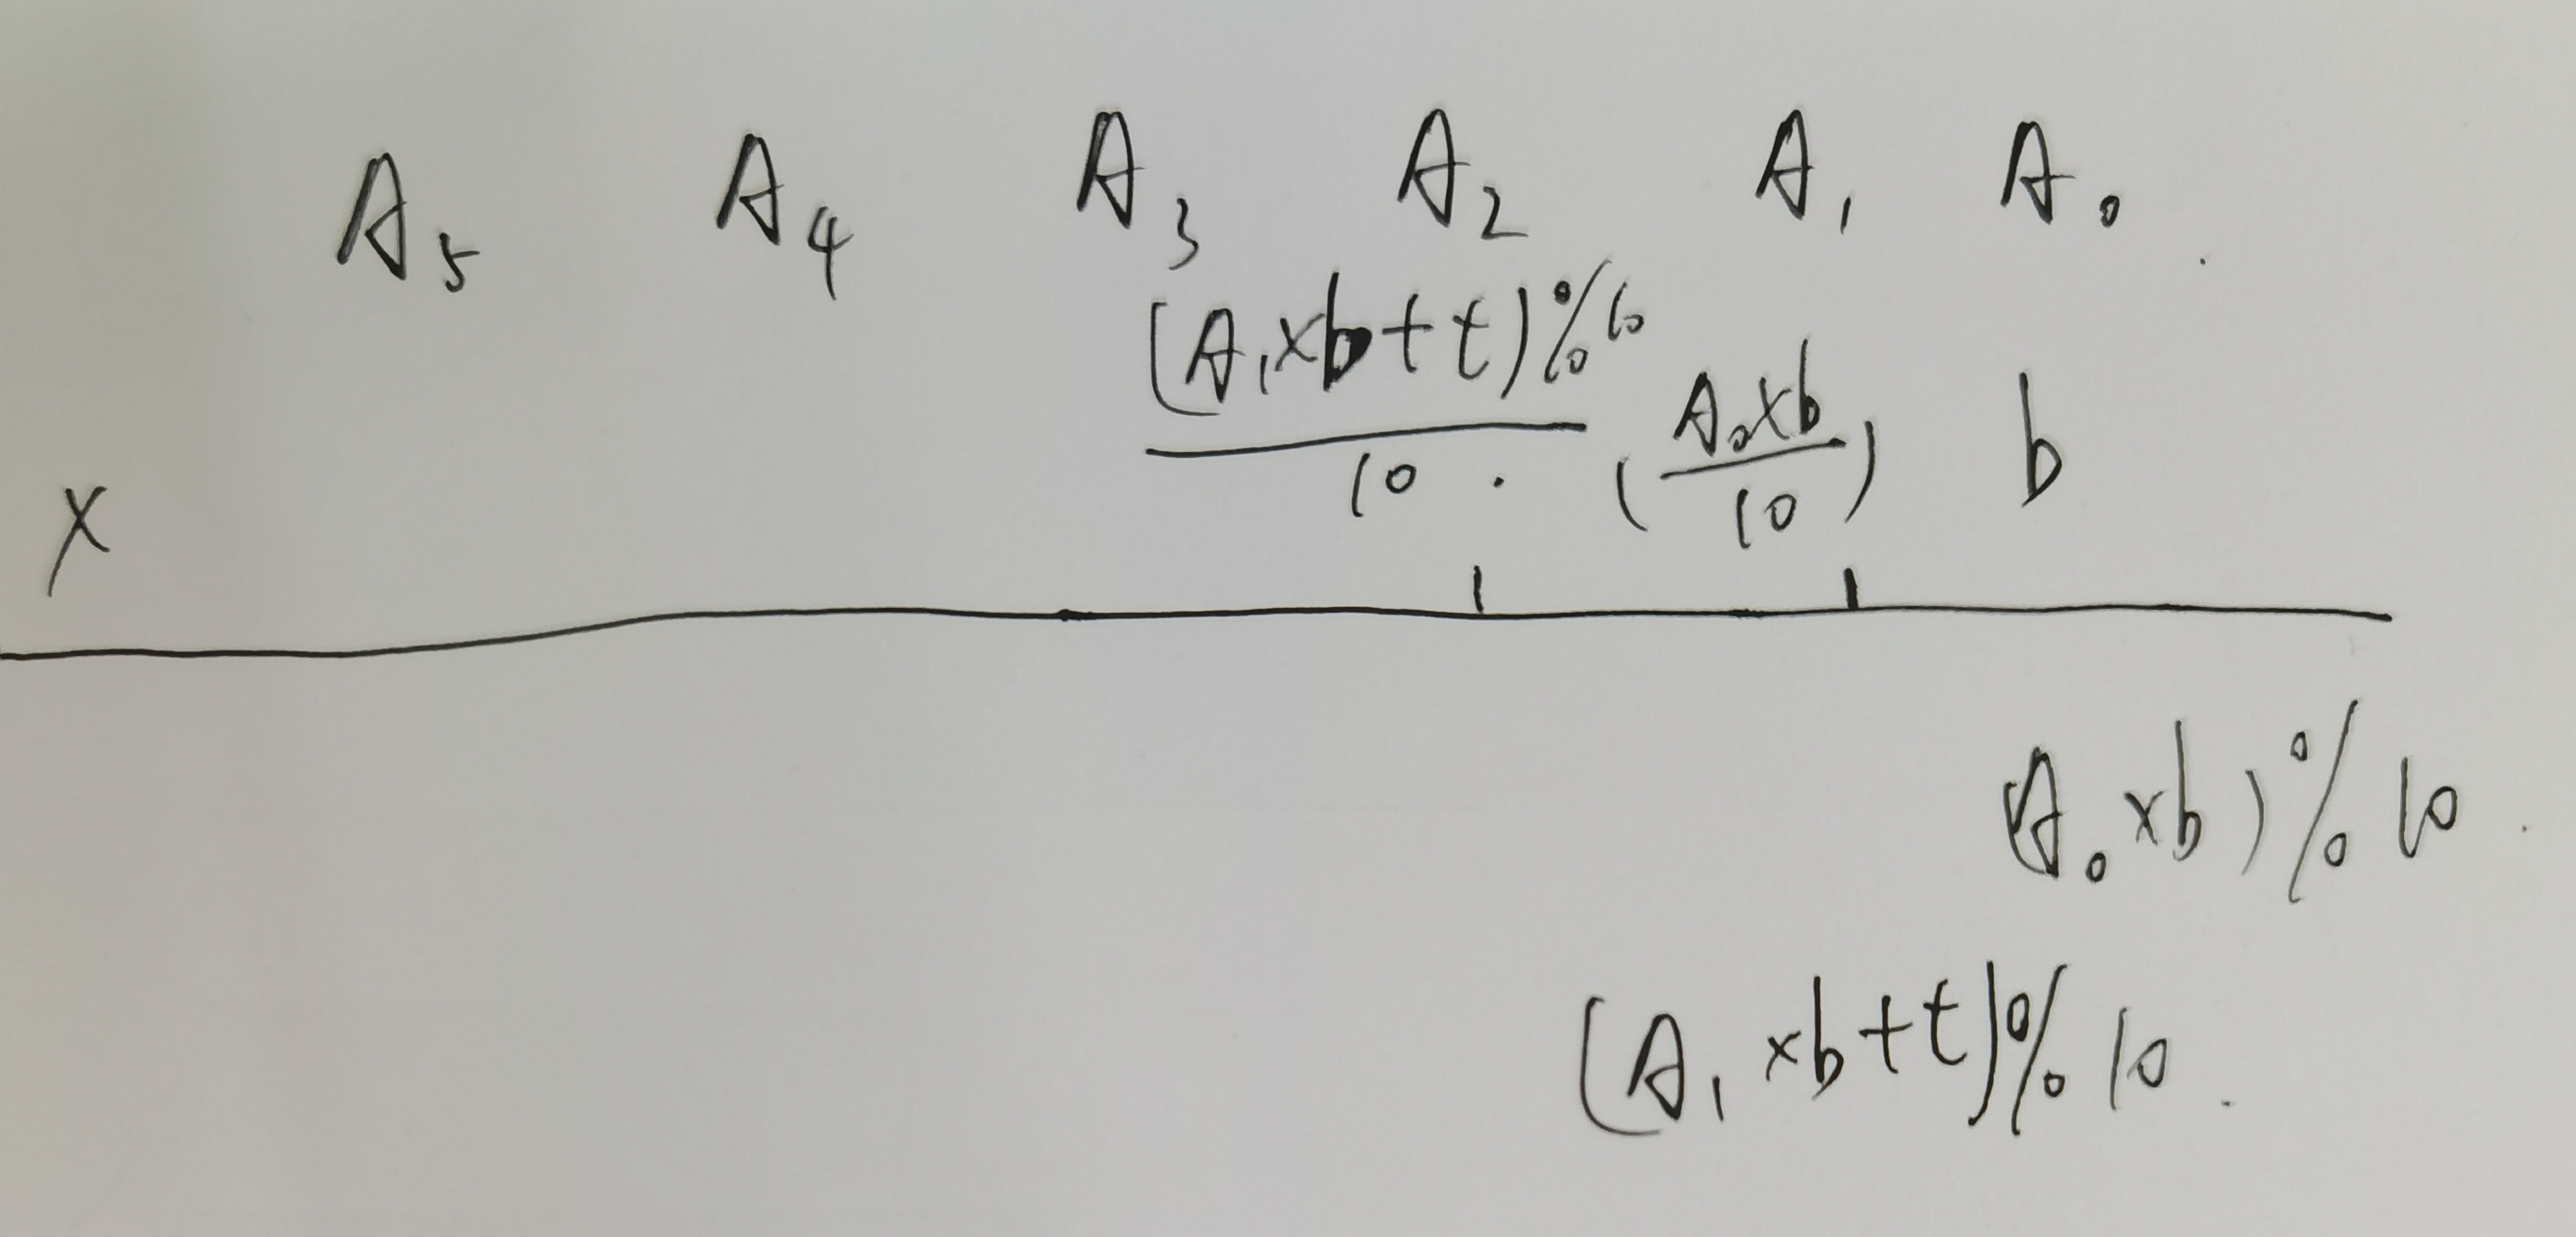 A₅ A₄ A₃ A₂ A₁ A₀ .
(A₁×b+t)%10
10 .
(A₀×b
10) b
×
(A₀×b)%10 .
(A₁×b+t)%10 .